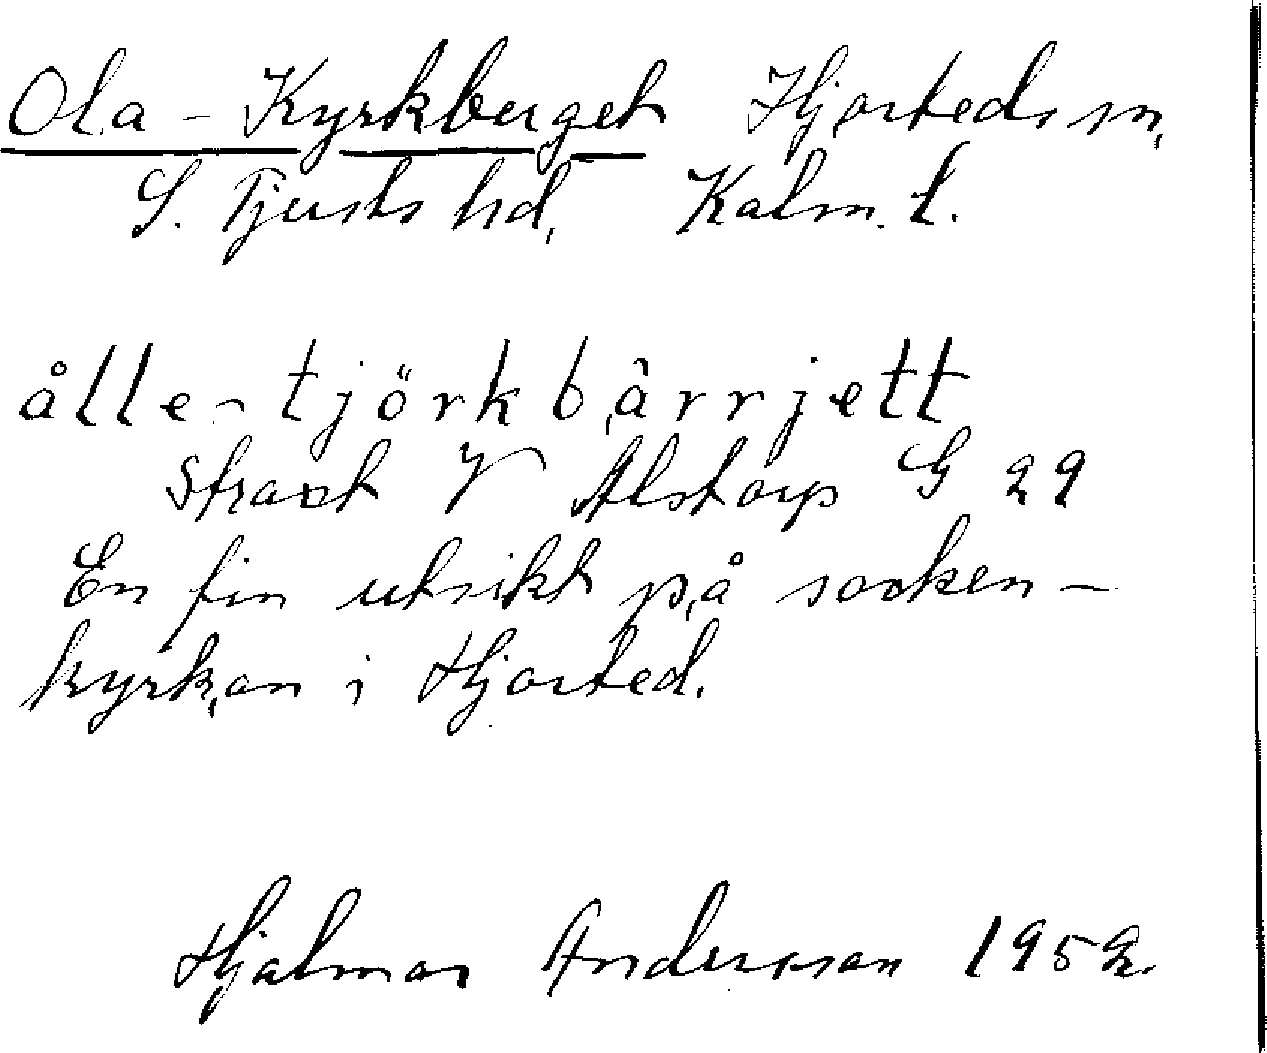 Ola-Kyrkberget Hjorteds sn,
S. Tjusts hd, Kalm. l.
ålle-tjörkbärrjett
Straxt V Alstorp G 29
En fin utsikt på socken-
kyrkan i Hjorted.
Hjalmar Andersson 1952.